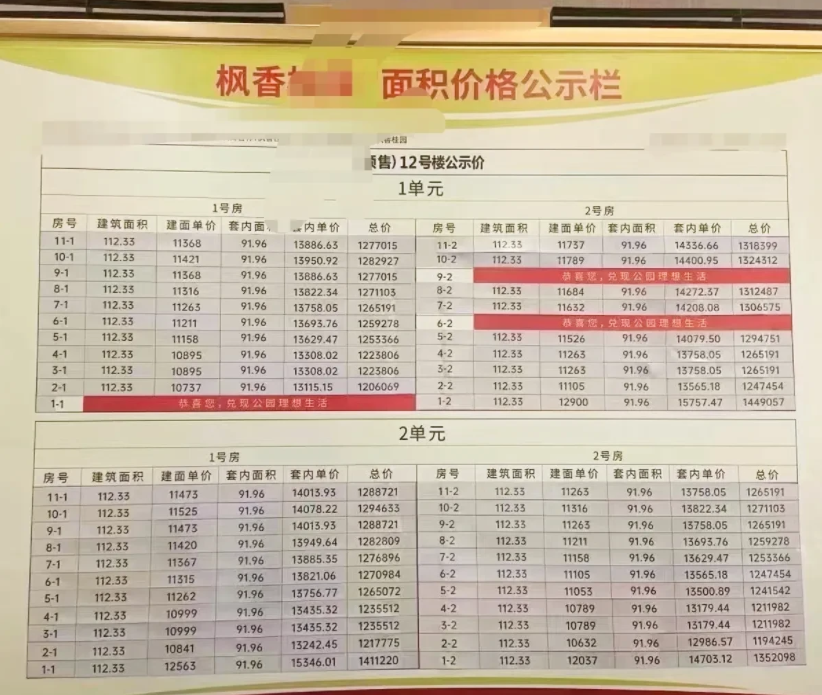 枫香 面积价格公示栏
售)12号楼公示价
1单元
1号房 2号房
房号 建筑面积 建面单价 套内面积 套内单价 总价 房号 建筑面积 建面单价 套内面积 套内单价 总价
11-1 112.33 11368 91.96 13886.63 1277015 11-2 112.33 11737 91.96 14336.66 1318399
10-1 112.33 11421 91.96 13950.92 1282927 10-2 112.33 11789 91.96 14400.95 1324312
9-1 112.33 11368 91.96 13886.63 1277015 9-2 恭喜您,兑现公园理想生活
8-1 112.33 11316 91.96 13822.34 1271103 8-2 112.33 11684 91.96 14272.37 1312487
7-1 112.33 11263 91.96 13758.05 1265191 7-2 112.33 11632 91.96 14208.08 1306575
6-1 112.33 11211 91.96 13693.76 1259278 6-2 恭喜您,兑现公园理想生活
5-1 112.33 11158 91.96 13629.47 1253366 5-2 112.33 11526 91.96 14079.50 1294751
4-1 112.33 10895 91.96 13308.02 1223806 4-2 112.33 11263 91.96 13758.05 1265191
3-1 112.33 10895 91.96 13308.02 1223806 3-2 112.33 11263 91.96 13758.05 1265191
2-1 112.33 10737 91.96 13115.15 1206069 2-2 112.33 11105 91.96 13565.18 1247454
1-1 恭喜您,兑现公园理想生活 1-2 112.33 12900 91.96 15757.47 1449057
2单元
1号房 2号房
房号 建筑面积 建面单价 套内面积 套内单价 总价 房号 建筑面积 建面单价 套内面积 套内单价 总价
11-1 112.33 11473 91.96 14013.93 1288721 11-2 112.33 11263 91.96 13758.05 1265191
10-1 112.33 11525 91.96 14078.22 1294633 10-2 112.33 11316 91.96 13822.34 1271103
9-1 112.33 11473 91.96 14013.93 1288721 9-2 112.33 11263 91.96 13758.05 1265191
8-1 112.33 11420 91.96 13949.64 1282809 8-2 112.33 11211 91.96 13693.76 1259278
7-1 112.33 11367 91.96 13885.35 1276896 7-2 112.33 11158 91.96 13629.47 1253366
6-1 112.33 11315 91.96 13821.06 1270984 6-2 112.33 11105 91.96 13565.18 1247454
5-1 112.33 11262 91.96 13756.77 1265072 5-2 112.33 11053 91.96 13500.89 1241542
4-1 112.33 10999 91.96 13435.32 1235512 4-2 112.33 10789 91.96 13179.44 1211982
3-1 112.33 10999 91.96 13435.32 1235512 3-2 112.33 10789 91.96 13179.44 1211982
2-1 112.33 10841 91.96 13242.45 1217775 2-2 112.33 10632 91.96 12986.57 1194245
1-1 112.33 12563 91.96 15346.01 1411220 1-2 112.33 12037 91.96 14703.12 1352098